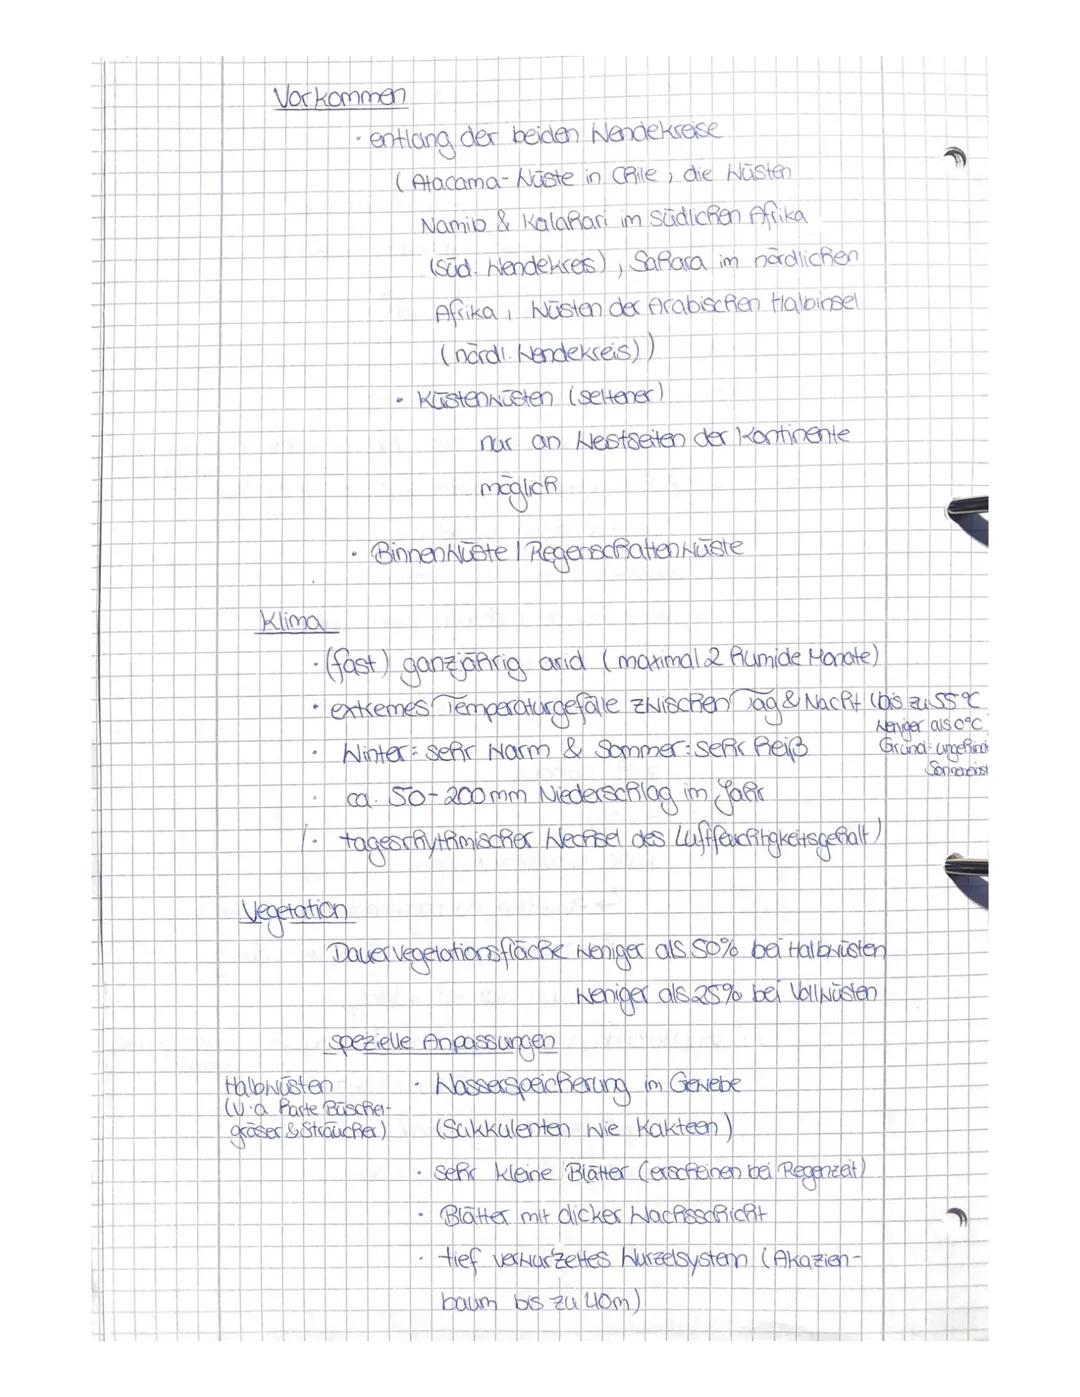 Vorkommen
· entlang der beiden Wendekreise
(Atacama-Wüste in Chile, die Wüsten
Namib & Kalahari im südlichen Afrika
(süd. Wendekreis), Sahara im nördlichen
Afrika, Wüsten der Arabischen Halbinsel
(nördl. Wendekreis))
· Küstenwüsten (seltener)
nur an Westseiten der Kontinente
möglich
· Binnenwüste / Regenschattenwüste
Klima
· (fast) ganzjährig arid (maximal 2 humide Monate)
· extremes Temperaturgefäle zwischen Tag & Nacht (bis zu 55°C
weniger als 0°C
Grund: ungehind
Sonneneinst
· Winter: sehr warm & Sommer: sehr heiß
· ca. 50-200mm Niederschlag im Jahr
· tagesrhythmischer Wechsel des Luftfeuchtigkeitsgehalt)
Vegetation
Dauervegetationsfläche weniger als 50% bei Halbwüsten
weniger als 25% bei Vollwüsten
spezielle Anpassungen
Halbwüsten
(v.a. harte Büschel-
gräser & Sträucher)
· Wasserspeicherung im Gewebe
(Sukkulenten wie Kakteen)
· sehr kleine Blätter (erscheinen bei Regenzeit)
· Blätter mit dicker Wachsschicht
· tief verwurzeltes Wurzelsystem (Akazien-
baum bis zu 40m)